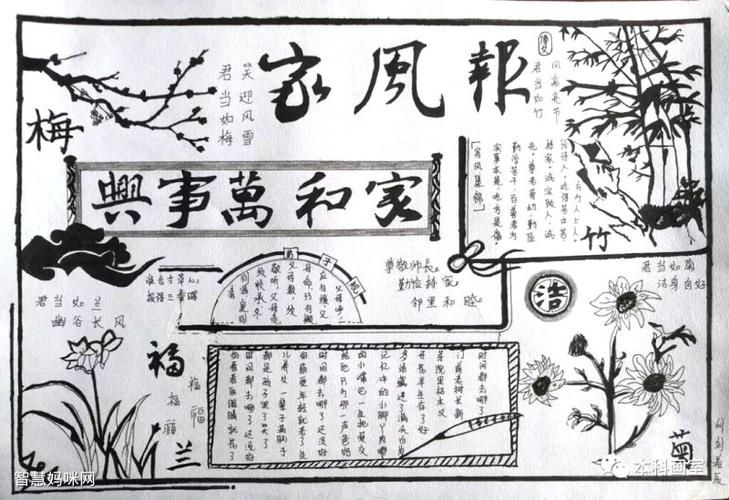 家風報
笑迎风雪
君当如梅
梅
清父
风高亮节
君当如竹
竹
興事萬和家
【家风集锦】
尊敬师長。
勤俭持家
邻里和睦。
谁言寸草心，
报得三春晖
弟子规
父母呼，
应勿缓，父
母命，行勿懒
父母教，须
敬听，父母责
须顺承，冬
则温，夏则
清
君当如兰
幽谷长风
福
福
福
福
兰
时间都去哪了
门前老树长新
芽院里枯木又
开花半生存了好
多话藏进了满头白发
记忆中的小脚丫肉嘟
嘟的小嘴巴一生把爱交
给他只为那一声爸妈
时间都去哪了还没好
好感受年轻就老了生
儿养女一辈子满脑子
都是孩子哭了笑了
时间都去哪了还没好
好看看你眼睛就花了
浩
君当如菊
洁身自好
菊
智慧妈咪网
本科画室